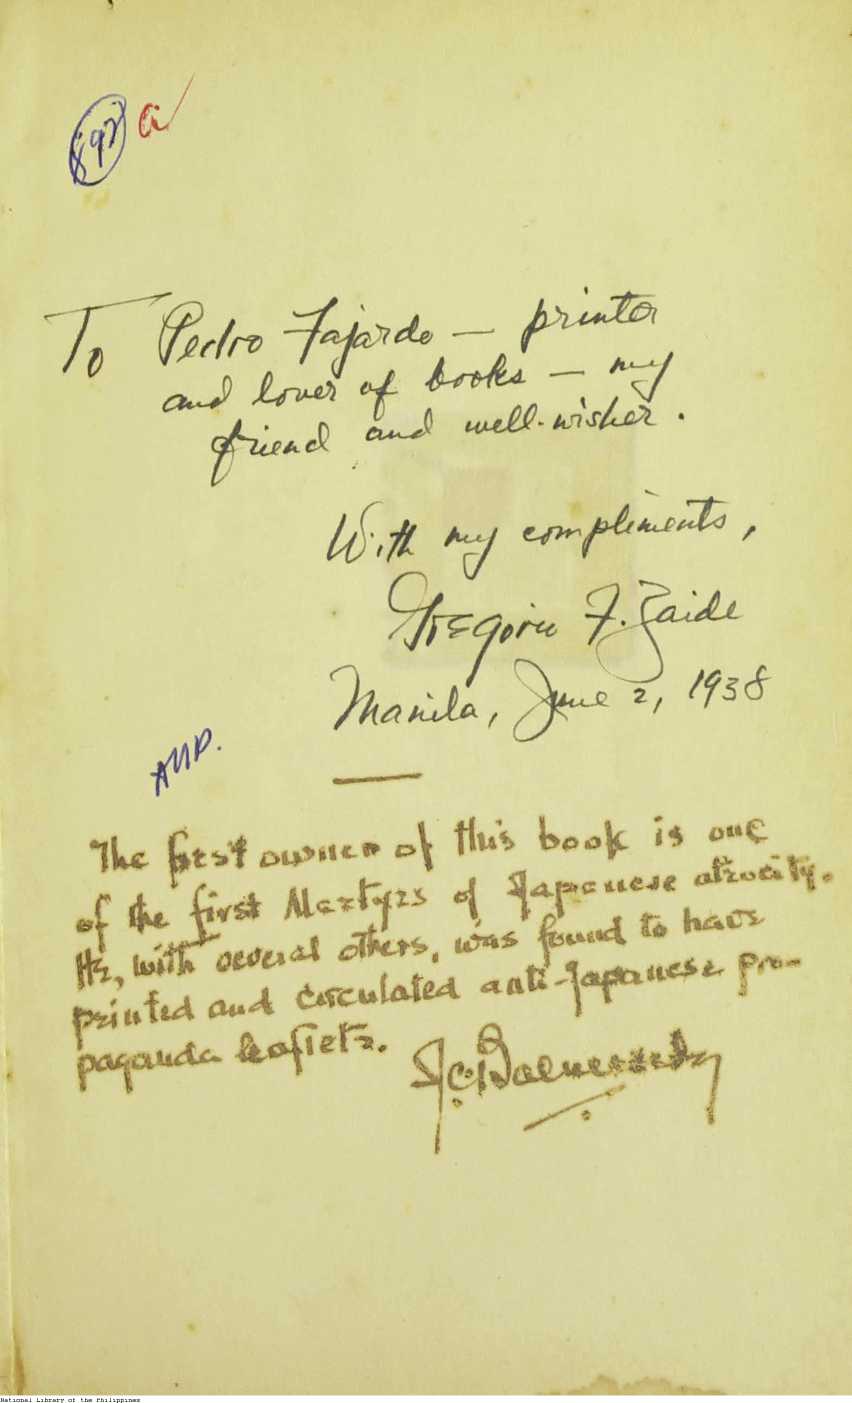 892 a
To Pedro Fajardo — printer
and lover of books — my
friend and well-wisher.
With my compliments,
Gregorio F. Zaide
Manila, June 2, 1938
The first owner of this book is one
of the first Martyrs of Japanese atrocity.
He, with several others, was found to have
printed and circulated anti-Japanese pro-
paganda leaflets.
National Library of the Philippines